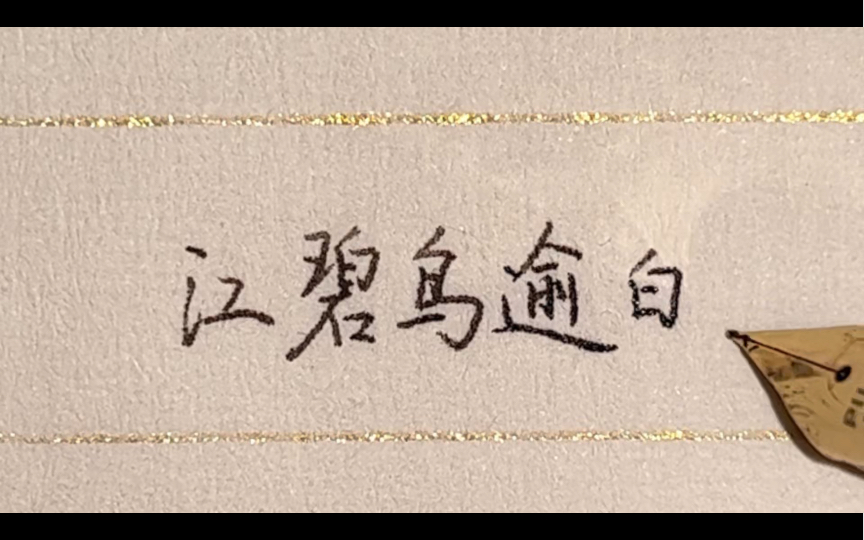 江碧鸟逾白